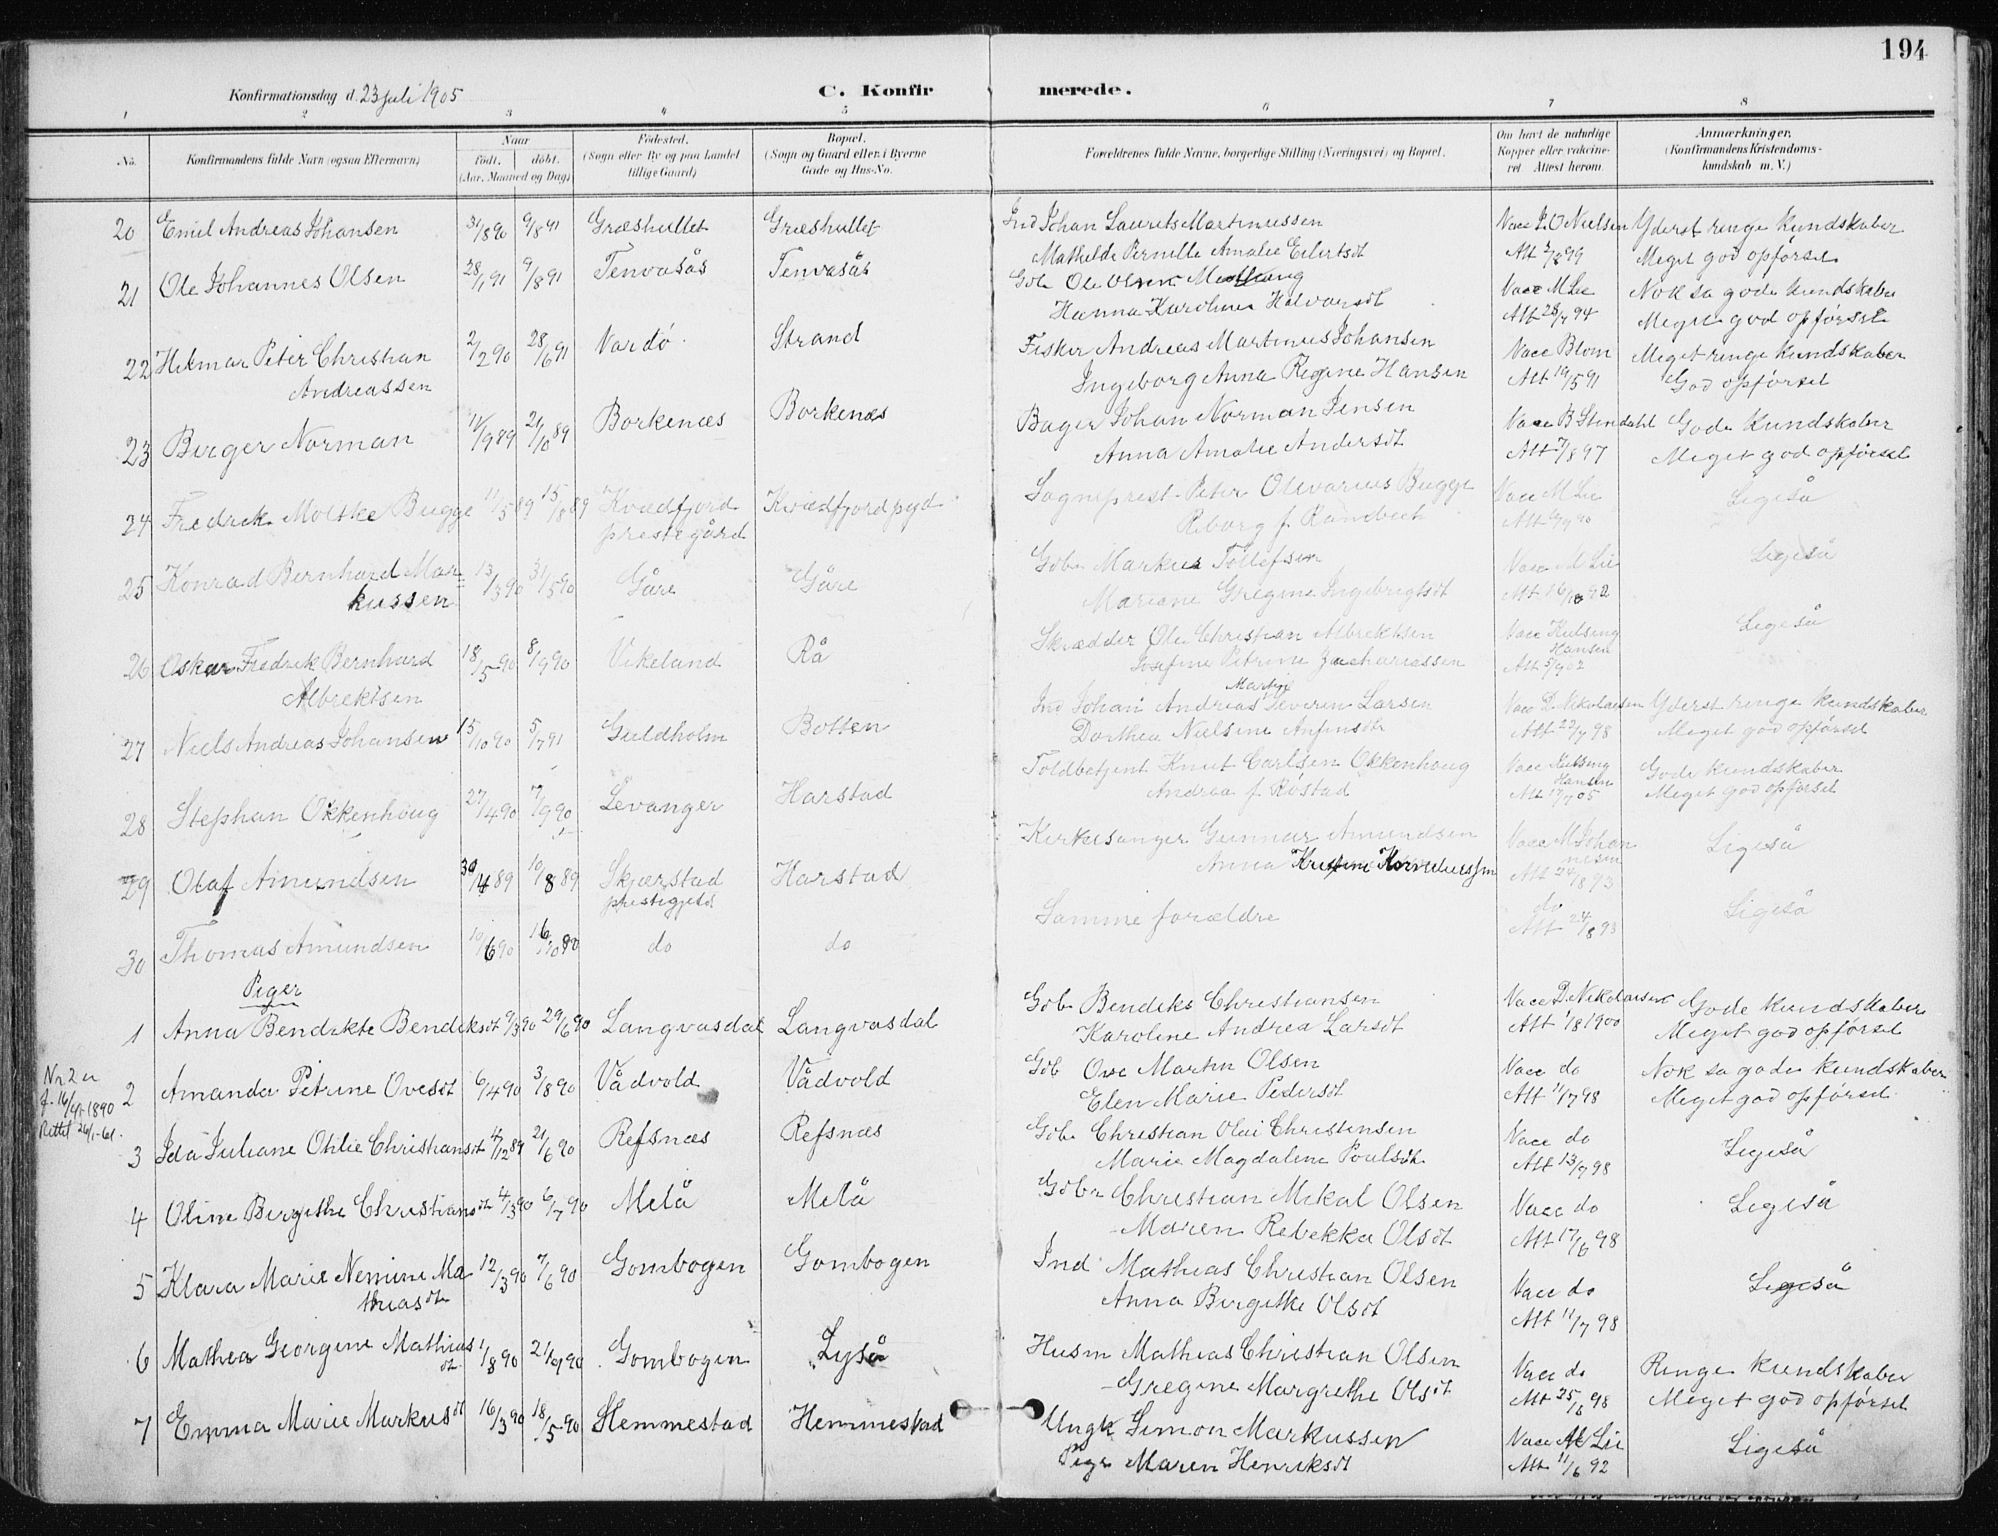 194
Konfirmationsdag d. 23 juli 1905
C. Konfirmerede.
1 2 3 4 5 6 7 8
No.
Konfirmandens fulde Navn (ogsaa Efternavn)
Naar
født. døbt.
(Aar, Maaned og Dag)
Fødested.
(Sogn eller By og paa Landet
tillige Gaard)
Bopæl.
(Sogn og Gaard eller i Byerne
Gade og Hus-No.
Forældrenes fulde Navne, borgerlige Stilling (Næringsvei) og Bopæl.
Om havt de naturlige
Kopper eller vakcine-
ret. Attest herom.
Anmærkninger.
(Konfirmandens Kristendoms-
kundskab m. V.)
20 Emil Andreas Johansen 31/8 90 9/8 91 Græshullet Græshullet Ind Johan Laurits Martinussen Vacc P. O Nielsen Yderst ringe kundskaber
Mathilde Pernille Amalie Eilertsdt Att 2/8 99 Meget god opførsel
21 Ole Johannes Olsen 28/1 91 9/8 91 Tenvasås Tenvasås Gbr Ole Olsen Vacc M Lie Nok så gode kundskaber
Hanna Karoline Halvarsdt Att 28/7 94 Meget god opførsel
22 Hilmar Peter Christian 2/2 90 28/6 91 Vardø Strand Fisker Andreas Martinus Johansen Vacc Blom Meget ringe kundskaber
Andreassen Ingeborg Anna Regine Hansen Att 19/5 91 God opførsel
23 Birger Norman 11/9 89 21/10 89 Borkenæs Borkenæs Bager Johan Norman Jensen Vacc B Stendahl Gode kundskaber
Anna Amalie Andersdt Att 7/8 97 Meget god opførsel
24 Fredrik Moltke Bugge 11/5 89 15/8 89 Kvædfjord Kvædfjord pgd Sogneprest Peter Olivarius Bugge Vacc M Lie Ligeså
prestegård Riborg f. Rambech
25 Konrad Bernhard Mar 13/3 90 31/5 90 Gåre Gåre Gbr Markus Tollefsen Vacc M Lie Ligeså
kussen Mariane Gregine Ingebrigtsdt
26 Oskar Fredrik Bernhard 18/5 90 8/9 90 Vikeland Rå Skrædder Ole Christian Albrektsen Vacc Kulseng Hansen Ligeså
Albrektsen Josefine Petrine Zachariassen Att 5/9 02
27 Niels Andreas Johansen 15/10 90 5/7 91 Guldholm Botten Ind Johan Andreas Martin Severin Larsen Vacc D. Nikolaisen Yderst ringe kundskaber
Dorthea Nielsine Anfinsdtr Att 22/7 98 Meget god opførsel
28 Stephan Okkenhoug 27/4 90 7/9 90 Levanger Harstad Toldbetjent Knut Carlsen Okkenhoug Vacc Kulseng Hansen Gode kundskaber
Andrea f. Røstad Att 17/7 05 Meget god opførsel
29 Olaf Amundsen 30/4 89 10/8 89 Skjærstad Harstad Kirkesanger Gunnar Amundsen Vacc M Johannesen Ligeså
prestegjeld Anna Kristine Korneliussen Att 24/8 93
30 Thomas Amundsen 10/6 90 16/10 90 do do Samme forældre do Ligeså
Att 24/8 93
Piger
1 Anna Bendikte Bendiksdt 9/3 90 29/6 90 Langvasdal Langvasdal Gbr Bendiks Christiansen Vacc D. Nikolaisen Gode kundskaber
Karoline Andrea Larsdt Att 1/8 1900 Meget god opførsel
Nr 2 er
f. 16/4-1890
Rettet 26/1-61.
2 Amanda Petrine Ovesdt 6/4 90 3/8 90 Vådvold Vådvold Gbr Ove Martin Olsen Vacc do Nok så gode kundskaber
Elen Marie Pedersdt Att 11/7 98 Meget god opførsel
3 Ida Juliane Otilie Christiansdt 4/12 89 21/6 90 Refsnæs Refsnæs Gbr Christian Olai Christensen Vacc do Ligeså
Marie Magdalene Poulsdt Att 13/7 98
4 Oline Birgithe Christiansdt 4/3 90 6/7 90 Melå Melå Gbr Christian Mikal Olsen Vacc do Ligeså
Maren Rebekka Olsdt Att 17/6 98
5 Klara Marie Nemine Ma 12/3 90 7/6 90 Gombogen Gombogen Ind Mathias Christian Olsen Vacc do Ligeså
thiasdtr Anna Birgithe Olsdt Att 11/7 98
6 Mathea Georgine Mathiasdt 1/8 90 21/9 90 Gombogen Lyså Husm Mathias Christian Olsen Vacc do Ringe kundskaber
Gregine Margrethe Olsdt Att 25/6 98 Meget god opførsel
7 Emma Marie Markusdt 16/3 90 18/5 90 Hemmestad Hemmestad Ungk Simon Markussen Vacc M Lie Ligeså
Pige Maren Henriksdt Att 11/6 92